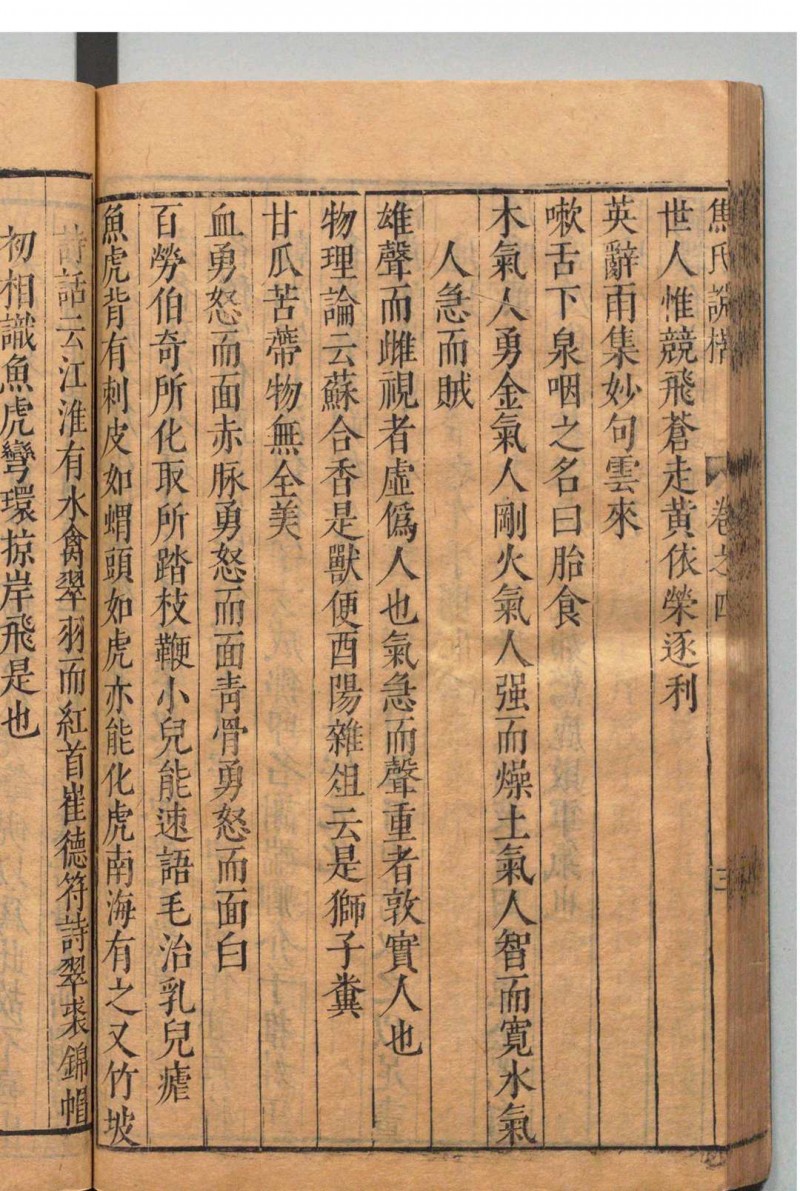 焦氏說楛 卷之四
世人惟競飛蒼走黃依榮逐利
英辭雨集妙句雲來
嗽舌下泉咽之名曰胎食
木氣人勇金氣人剛火氣人强而燥土氣人智而寬水氣
人急而賊
雄聲而雌視者虛僞人也氣急而聲重者敦實人也
物理論云蘇合香是獸便酉陽雜俎云是獅子糞
甘瓜苦蔕物無全美
血勇怒而面赤脉勇怒而面靑骨勇怒而面白
百勞伯奇所化取所踏枝鞭小兒能速語毛治乳兒瘧
魚虎背有刺皮如蝟頭如虎亦能化虎南海有之又竹坡
詩話云江淮有水禽翠羽而紅首崔德符詩翠裘錦帽
初相識魚虎彎環掠岸飛是也